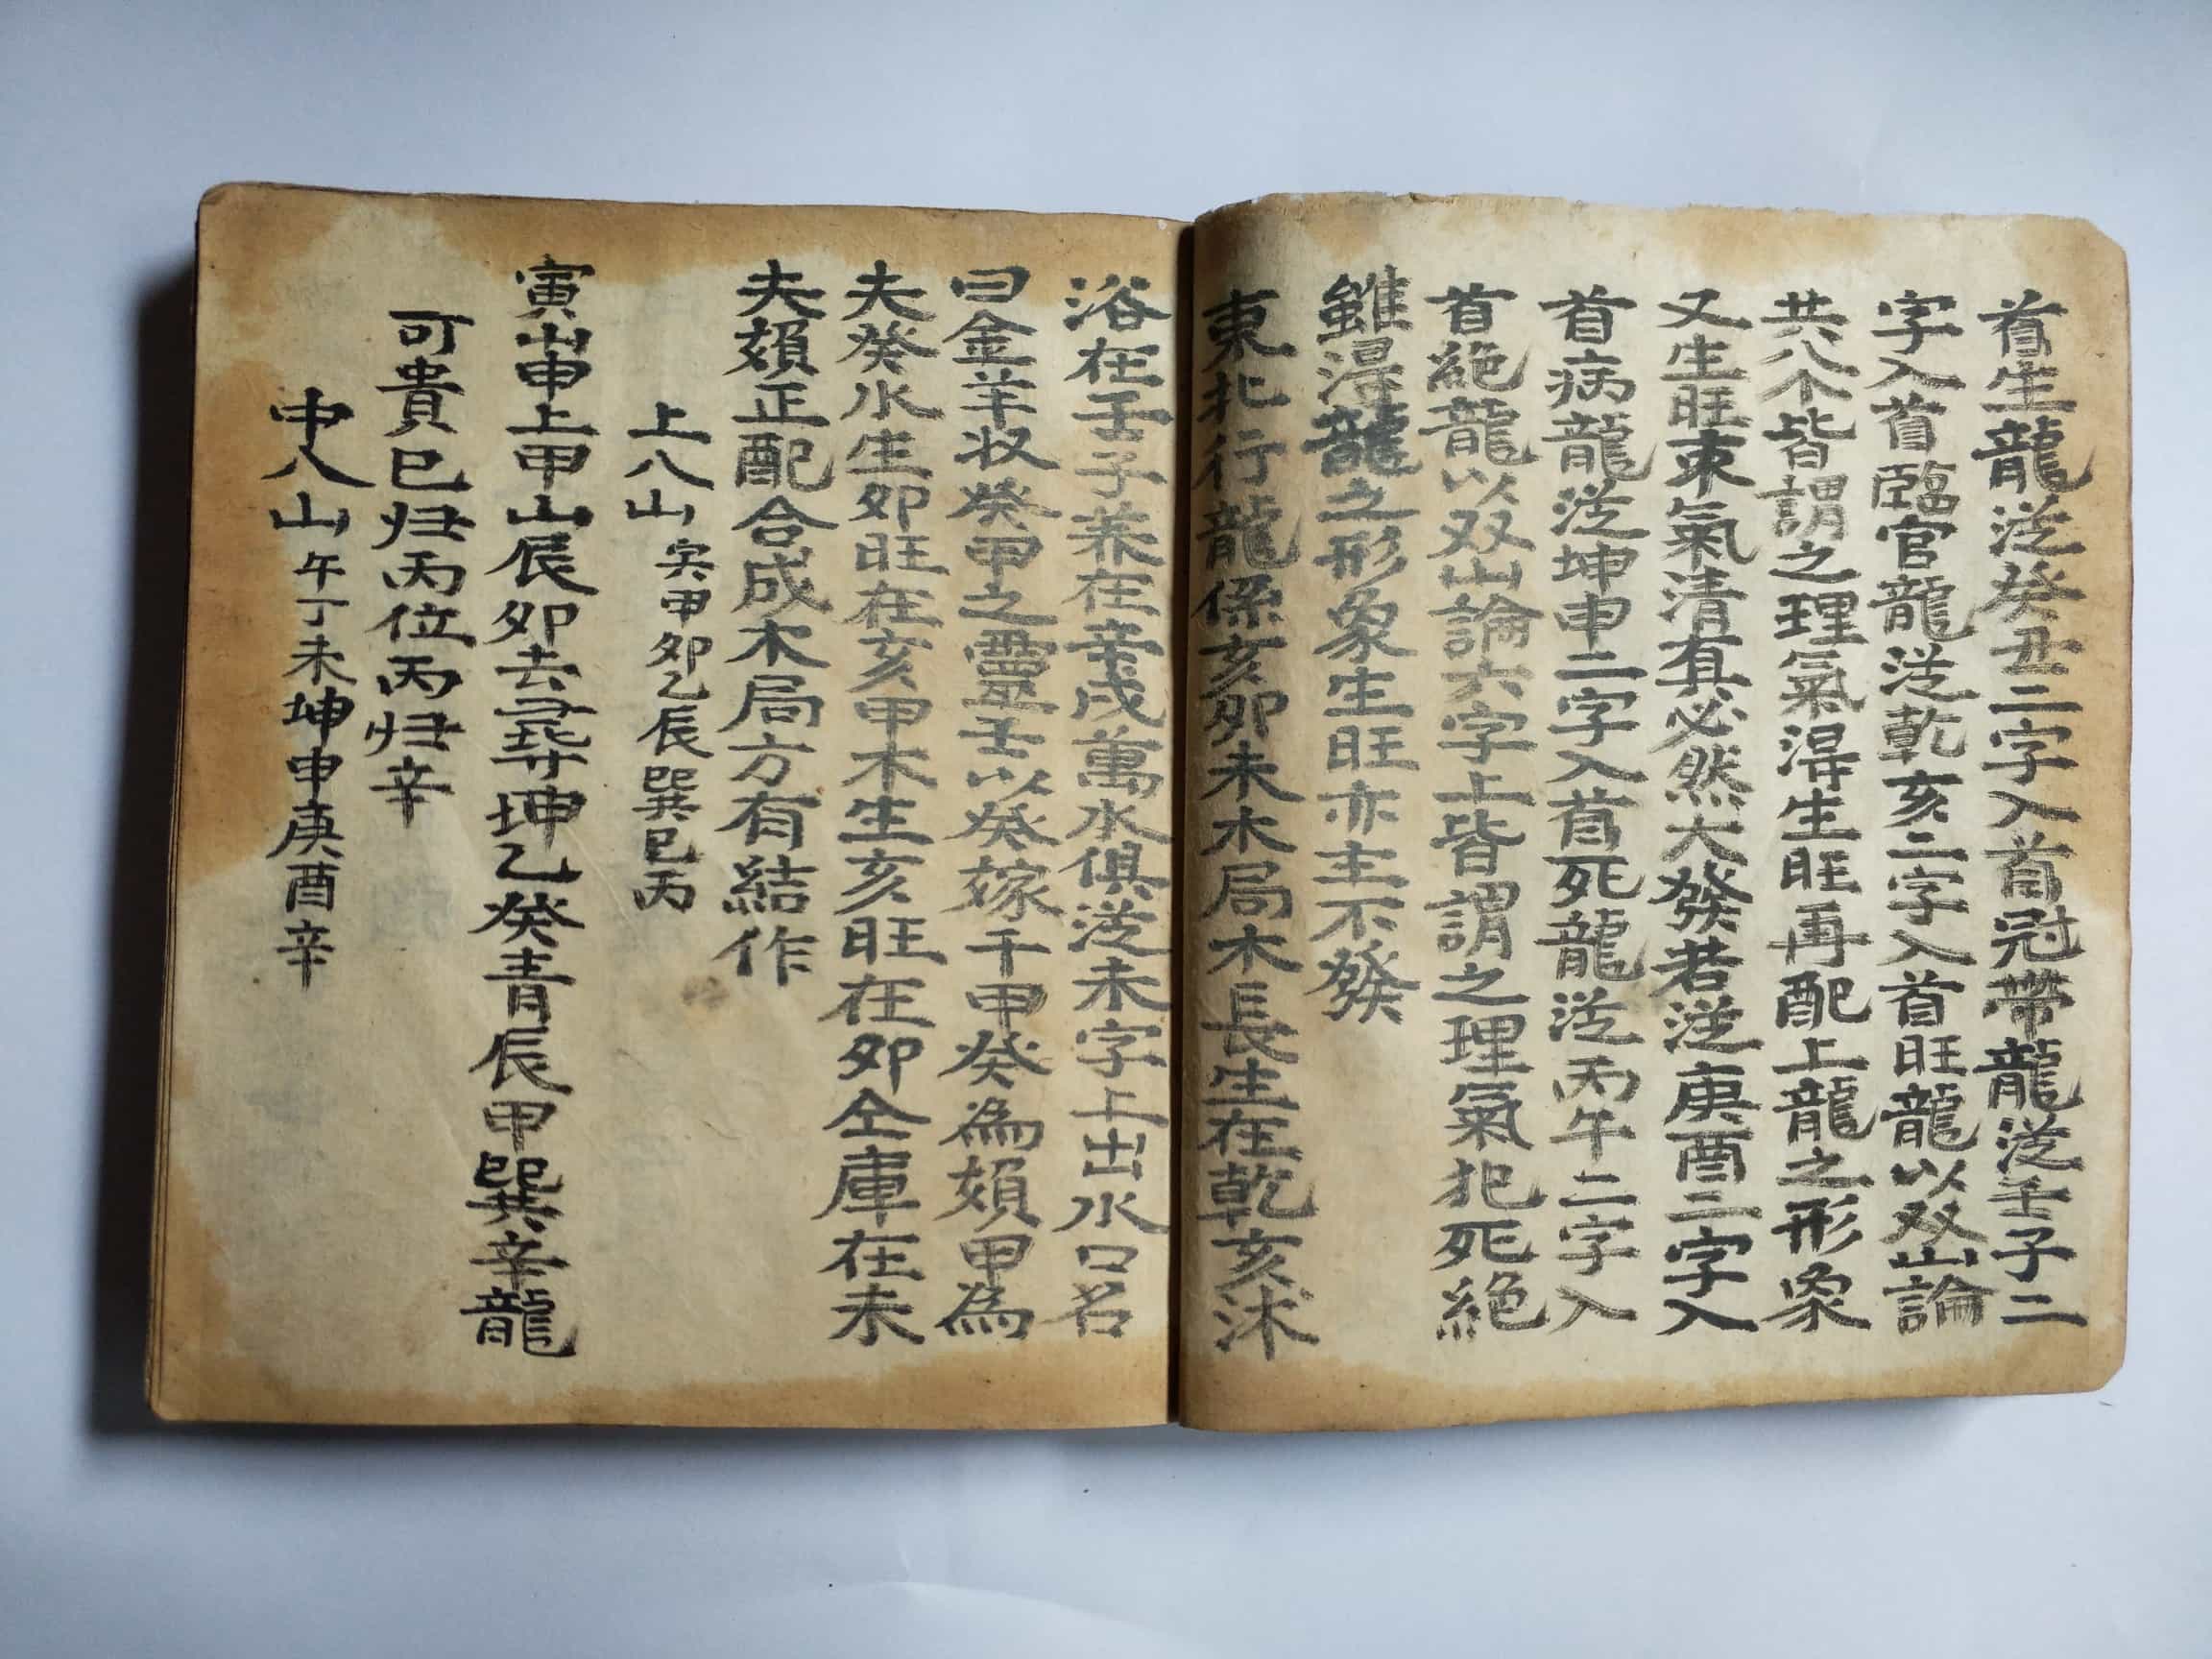 首生龍从癸丑二字入首冠帶龍从壬子二
字入首臨官龍从乾亥二字入首旺龍以双山論
共八个皆謂之理氣淂生旺再配上龍之形象
又生旺束氣清真必然大發若逆庚酉二字入
首病龍从坤申二字入首死龍从丙午二字入
首絕龍以双山論六字上皆謂之理氣犯死絕
雖淂龍之形象生旺亦主不發
東北行龍係亥卯未木局木長生在乾亥沭
浴在壬子养在辛戌萬水俱从未字上出水口名
曰金羊收癸甲之靈壬以癸嫁千甲癸為頞甲為
夫癸水生卯旺在亥甲木生亥旺在卯仝庫在未
夫頞正配合成木局方有結作
上八山 寅甲卯乙辰巽巳丙
寅山申上甲山辰卯去尋坤乙癸青辰甲巽辛龍
可貴巳归丙位丙归辛
中八山 午丁未坤申庚酉辛